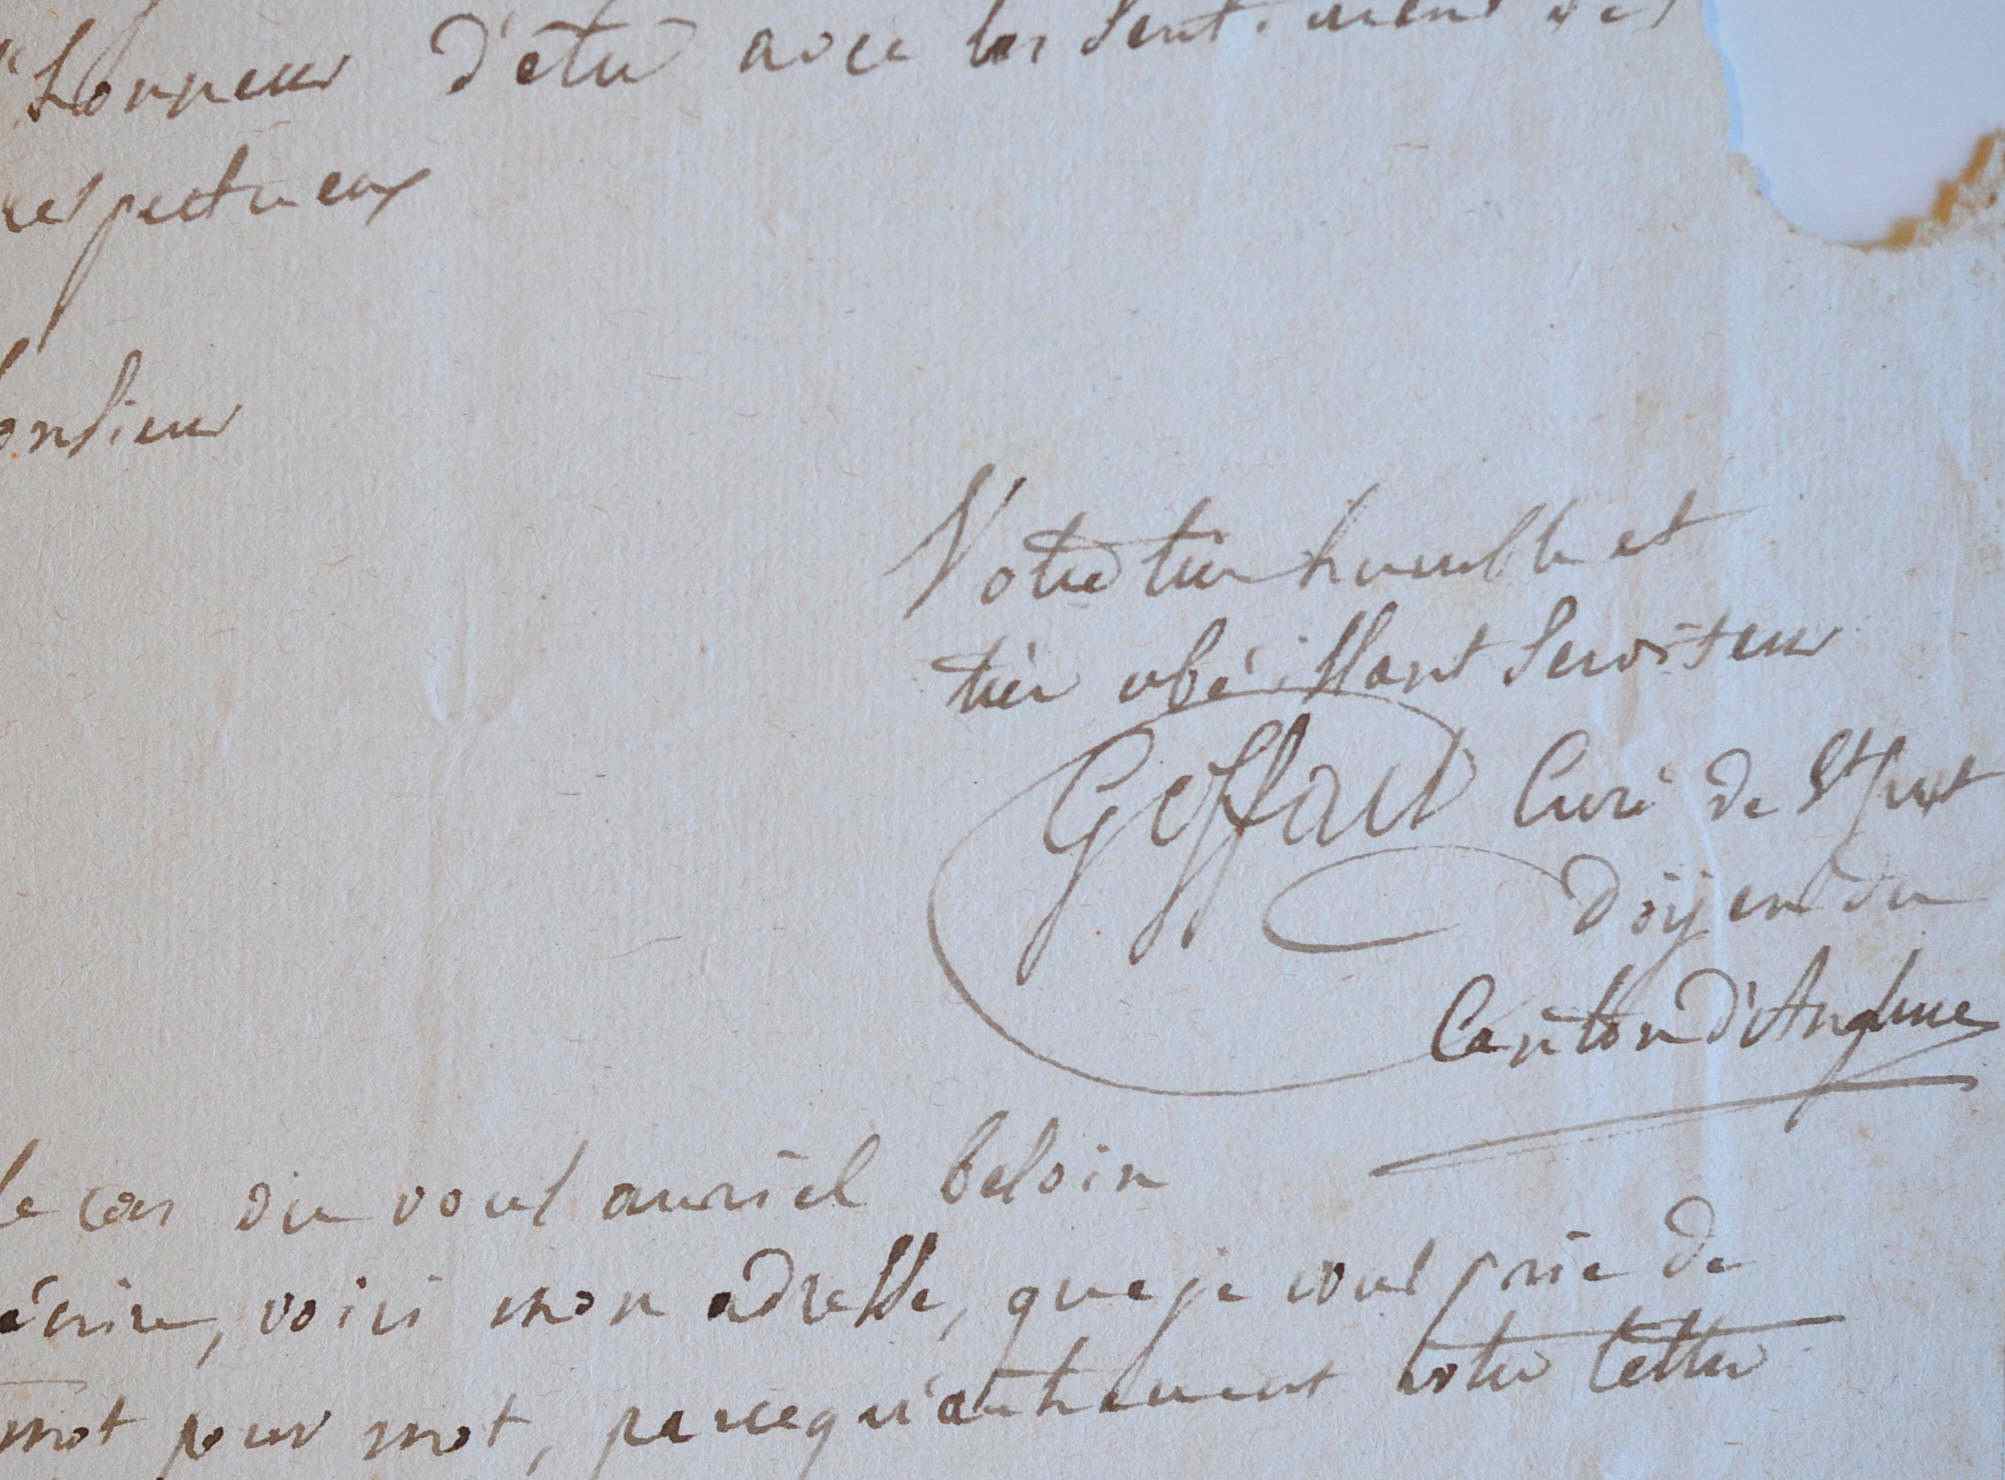 l'honneur d'être avec les sentiments
respectueux
onsieur
Votre très humble et
très obéissant Serviteur
Geffard Curé de St Just
Doÿen du
Canton d'Anglure
le cas où vous auriés besoin
écrire, voici mon adresse, que je vous prie de
mot pour mot, parcequ'autrement votre lettre